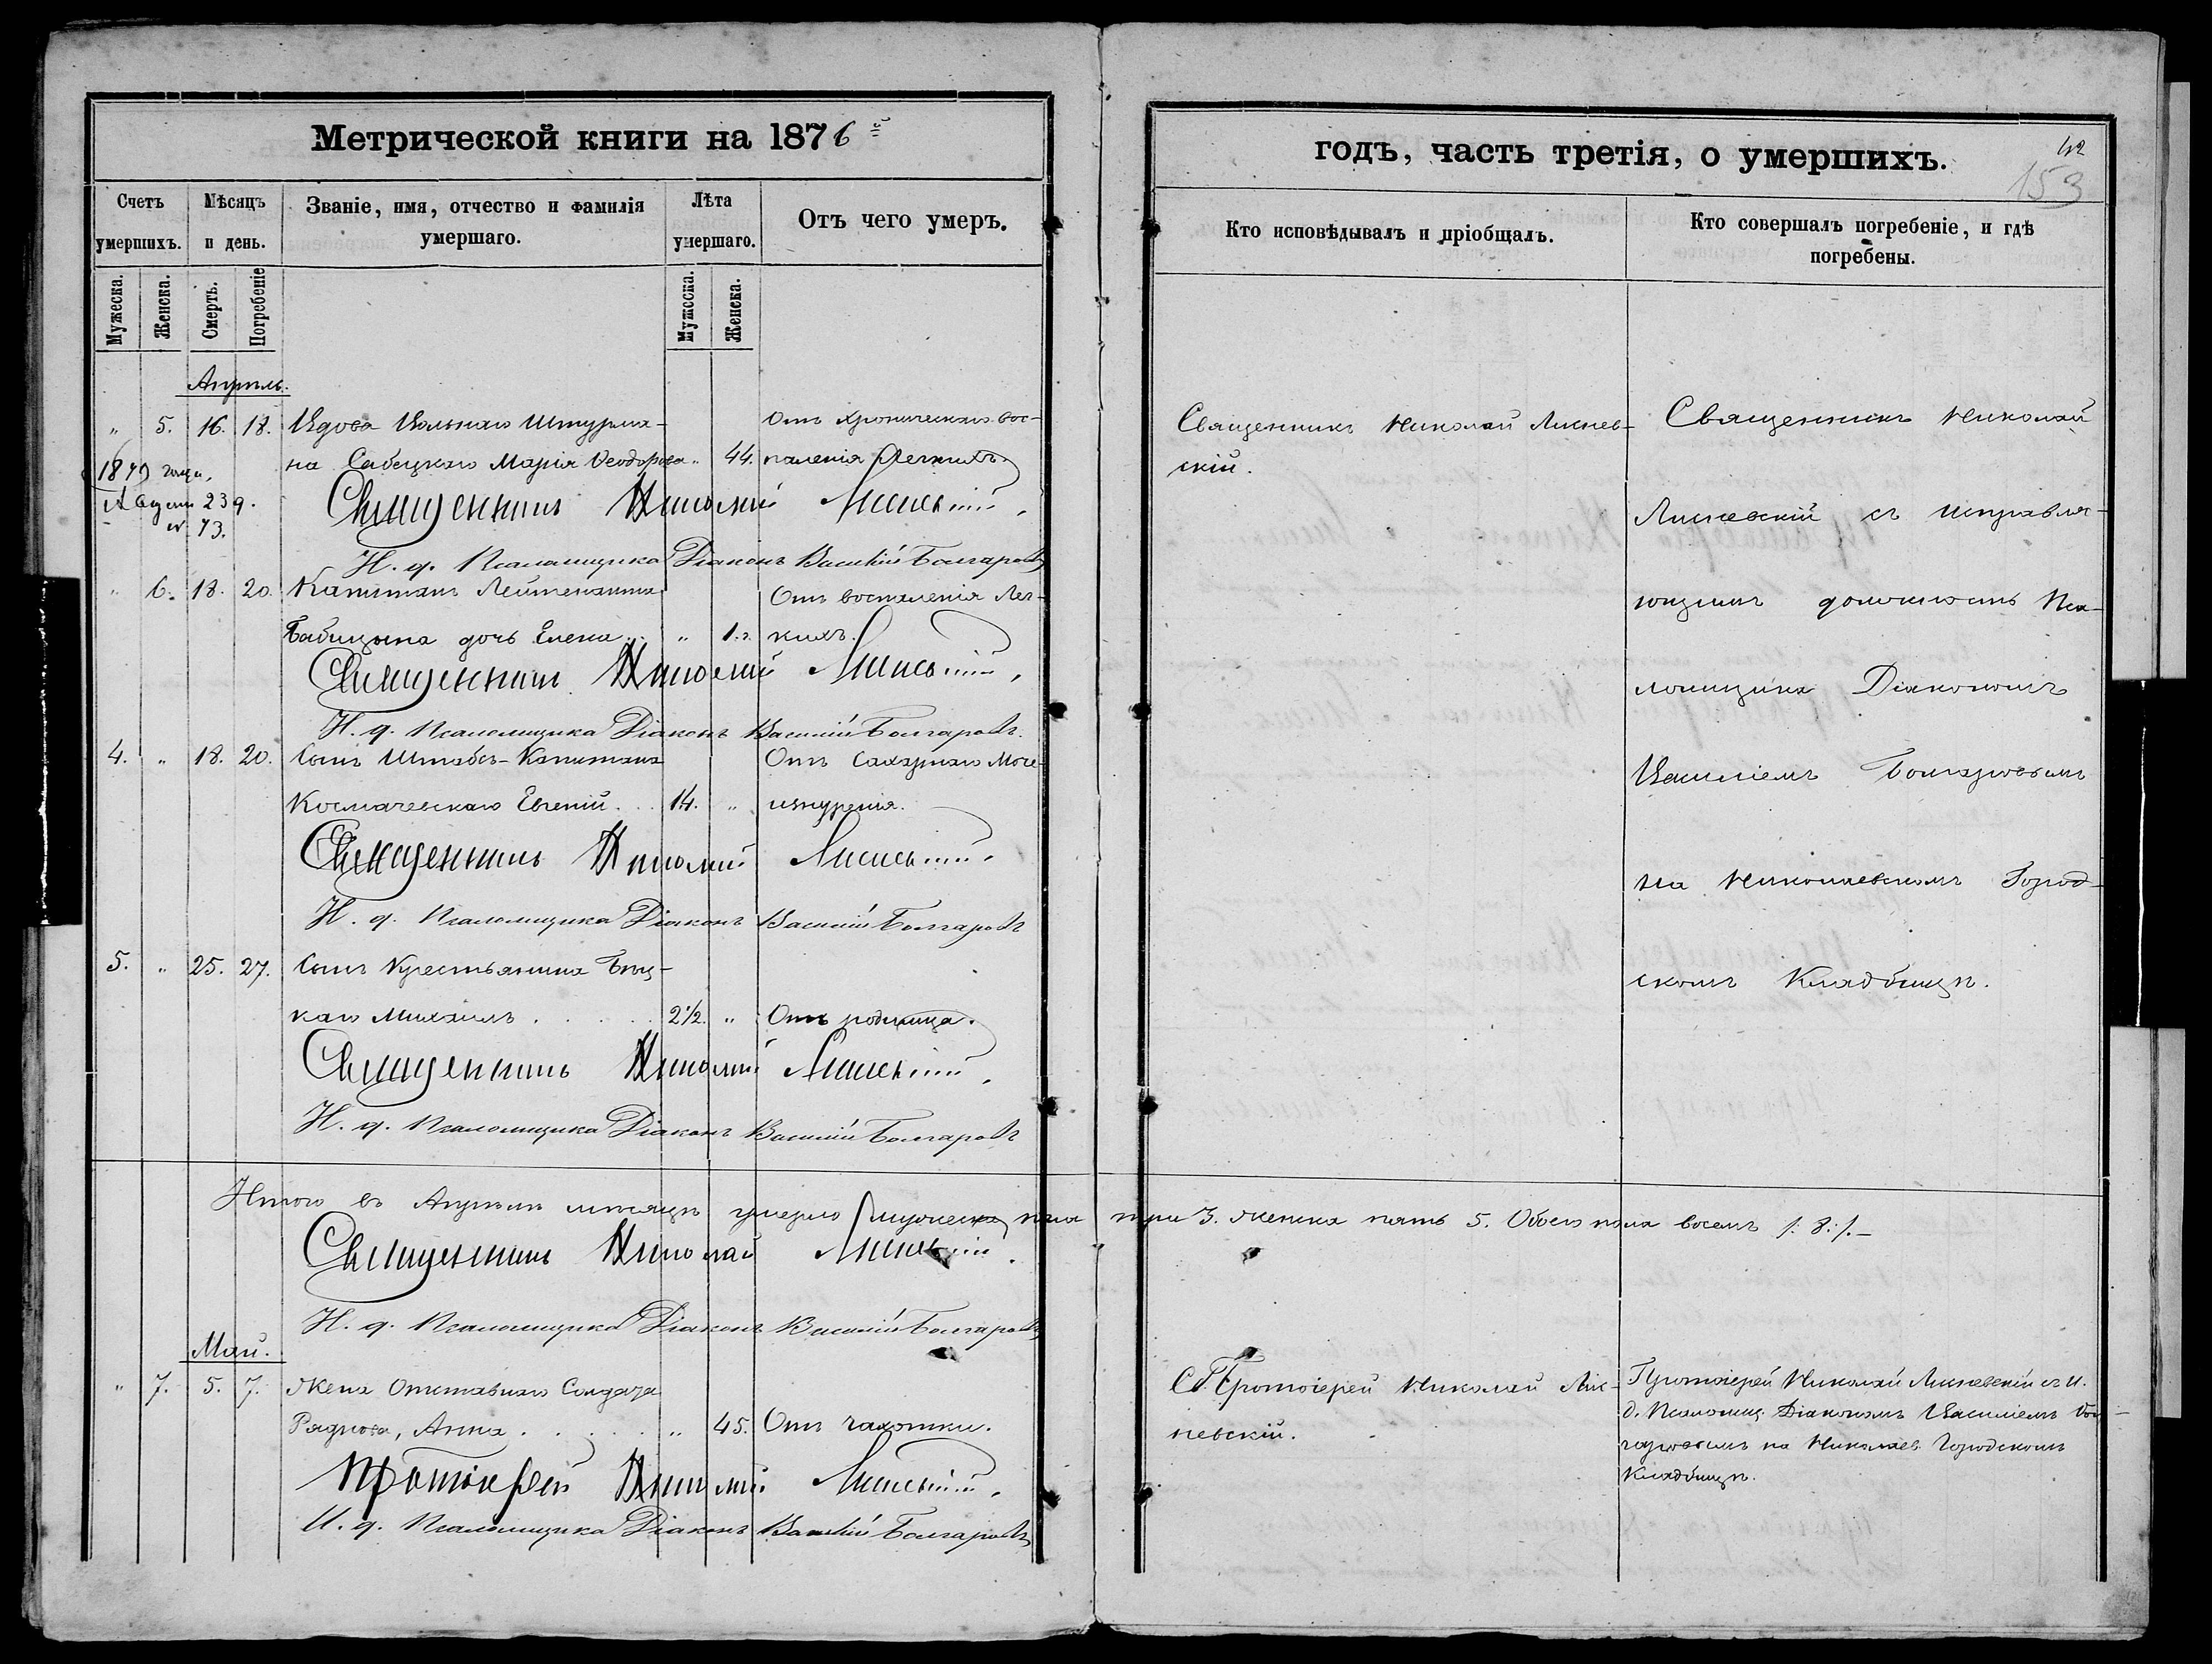 Метрической книги на 1876 ій
Счетъ умершихъ.
Мѣсяцъ и день.
Званіе, имя, отчество и фамилія умершаго.
Лѣта умершаго.
Отъ чего умеръ.
Мужеска.
Женска.
Смерть.
Погребеніе
Мужеска.
Женска.
Апрѣль.
" 5. 16. 18. Вдова Вольнаго Штурма- Отъ хроническаго вос-
на Марія Ѳеодорова " 44. паленія Легкихъ.
1879 года,
Августа 23 д.
№ 73.
Священникъ Николай
И. д. Псаломщика Діаконъ Василій Болгаровъ
" 6. 18. 20. Капитанъ Лейтенанта Отъ воспаленія Лег-
Бабицына дочь Елена " 1.г. кихъ.
Священникъ Николай
И. д. Псаломщика Діаконъ Василій Болгаровъ.
4. " 18. 20. Сынъ Штабсъ-Капитана Отъ Сахарнаго Моче-
Космачевскаго Евгеній . . 14. " изнуренія.
Священникъ Николай
И. д. Псаломщика Діаконъ Василій Болгаровъ
5. " 25. 27. Сынъ Крестьянина
каго Михаилъ . . . . . 2½. " Отъ родимца.
Священникъ Николай
И. д. Псаломщика Діаконъ Василій Болгаровъ
Итого въ Апрѣлѣ мѣсяцѣ умерло мужеска пола три 3. женска пять 5. Обоего пола восемь /:8:/.—
Священникъ Николай
И. д. Псаломщика Діаконъ Василій Болгаровъ
Май.
" 7. 5. 7. Жена Отставнаго Солдата
Раднова, Анна . . . . . " 45. Отъ чахотки.
Протоіерей Николай
И. д. Псаломщика Діаконъ Василій Болгаровъ
годъ, часть третія, о умершихъ.
42
153
Кто исповѣдывалъ и пріобщалъ.
Кто совершалъ погребеніе, и гдѣ
погребены.
Священникъ Николай Лиснев-
скій.
Священникъ Николай
Лисневскій съ исправля-
ющимъ должность Пса-
ломщика Діакономъ
Василіемъ Болгаровымъ
на Николаевскомъ Город-
скомъ Кладбищѣ.
Протоіерей Николай Лис-
невскій.
Протоіерей Николай Лисневскій съ И.
д. Псаломщ. Діакономъ Василіемъ Бол-
гаровымъ на Николаев. Городскомъ
Кладбищѣ.